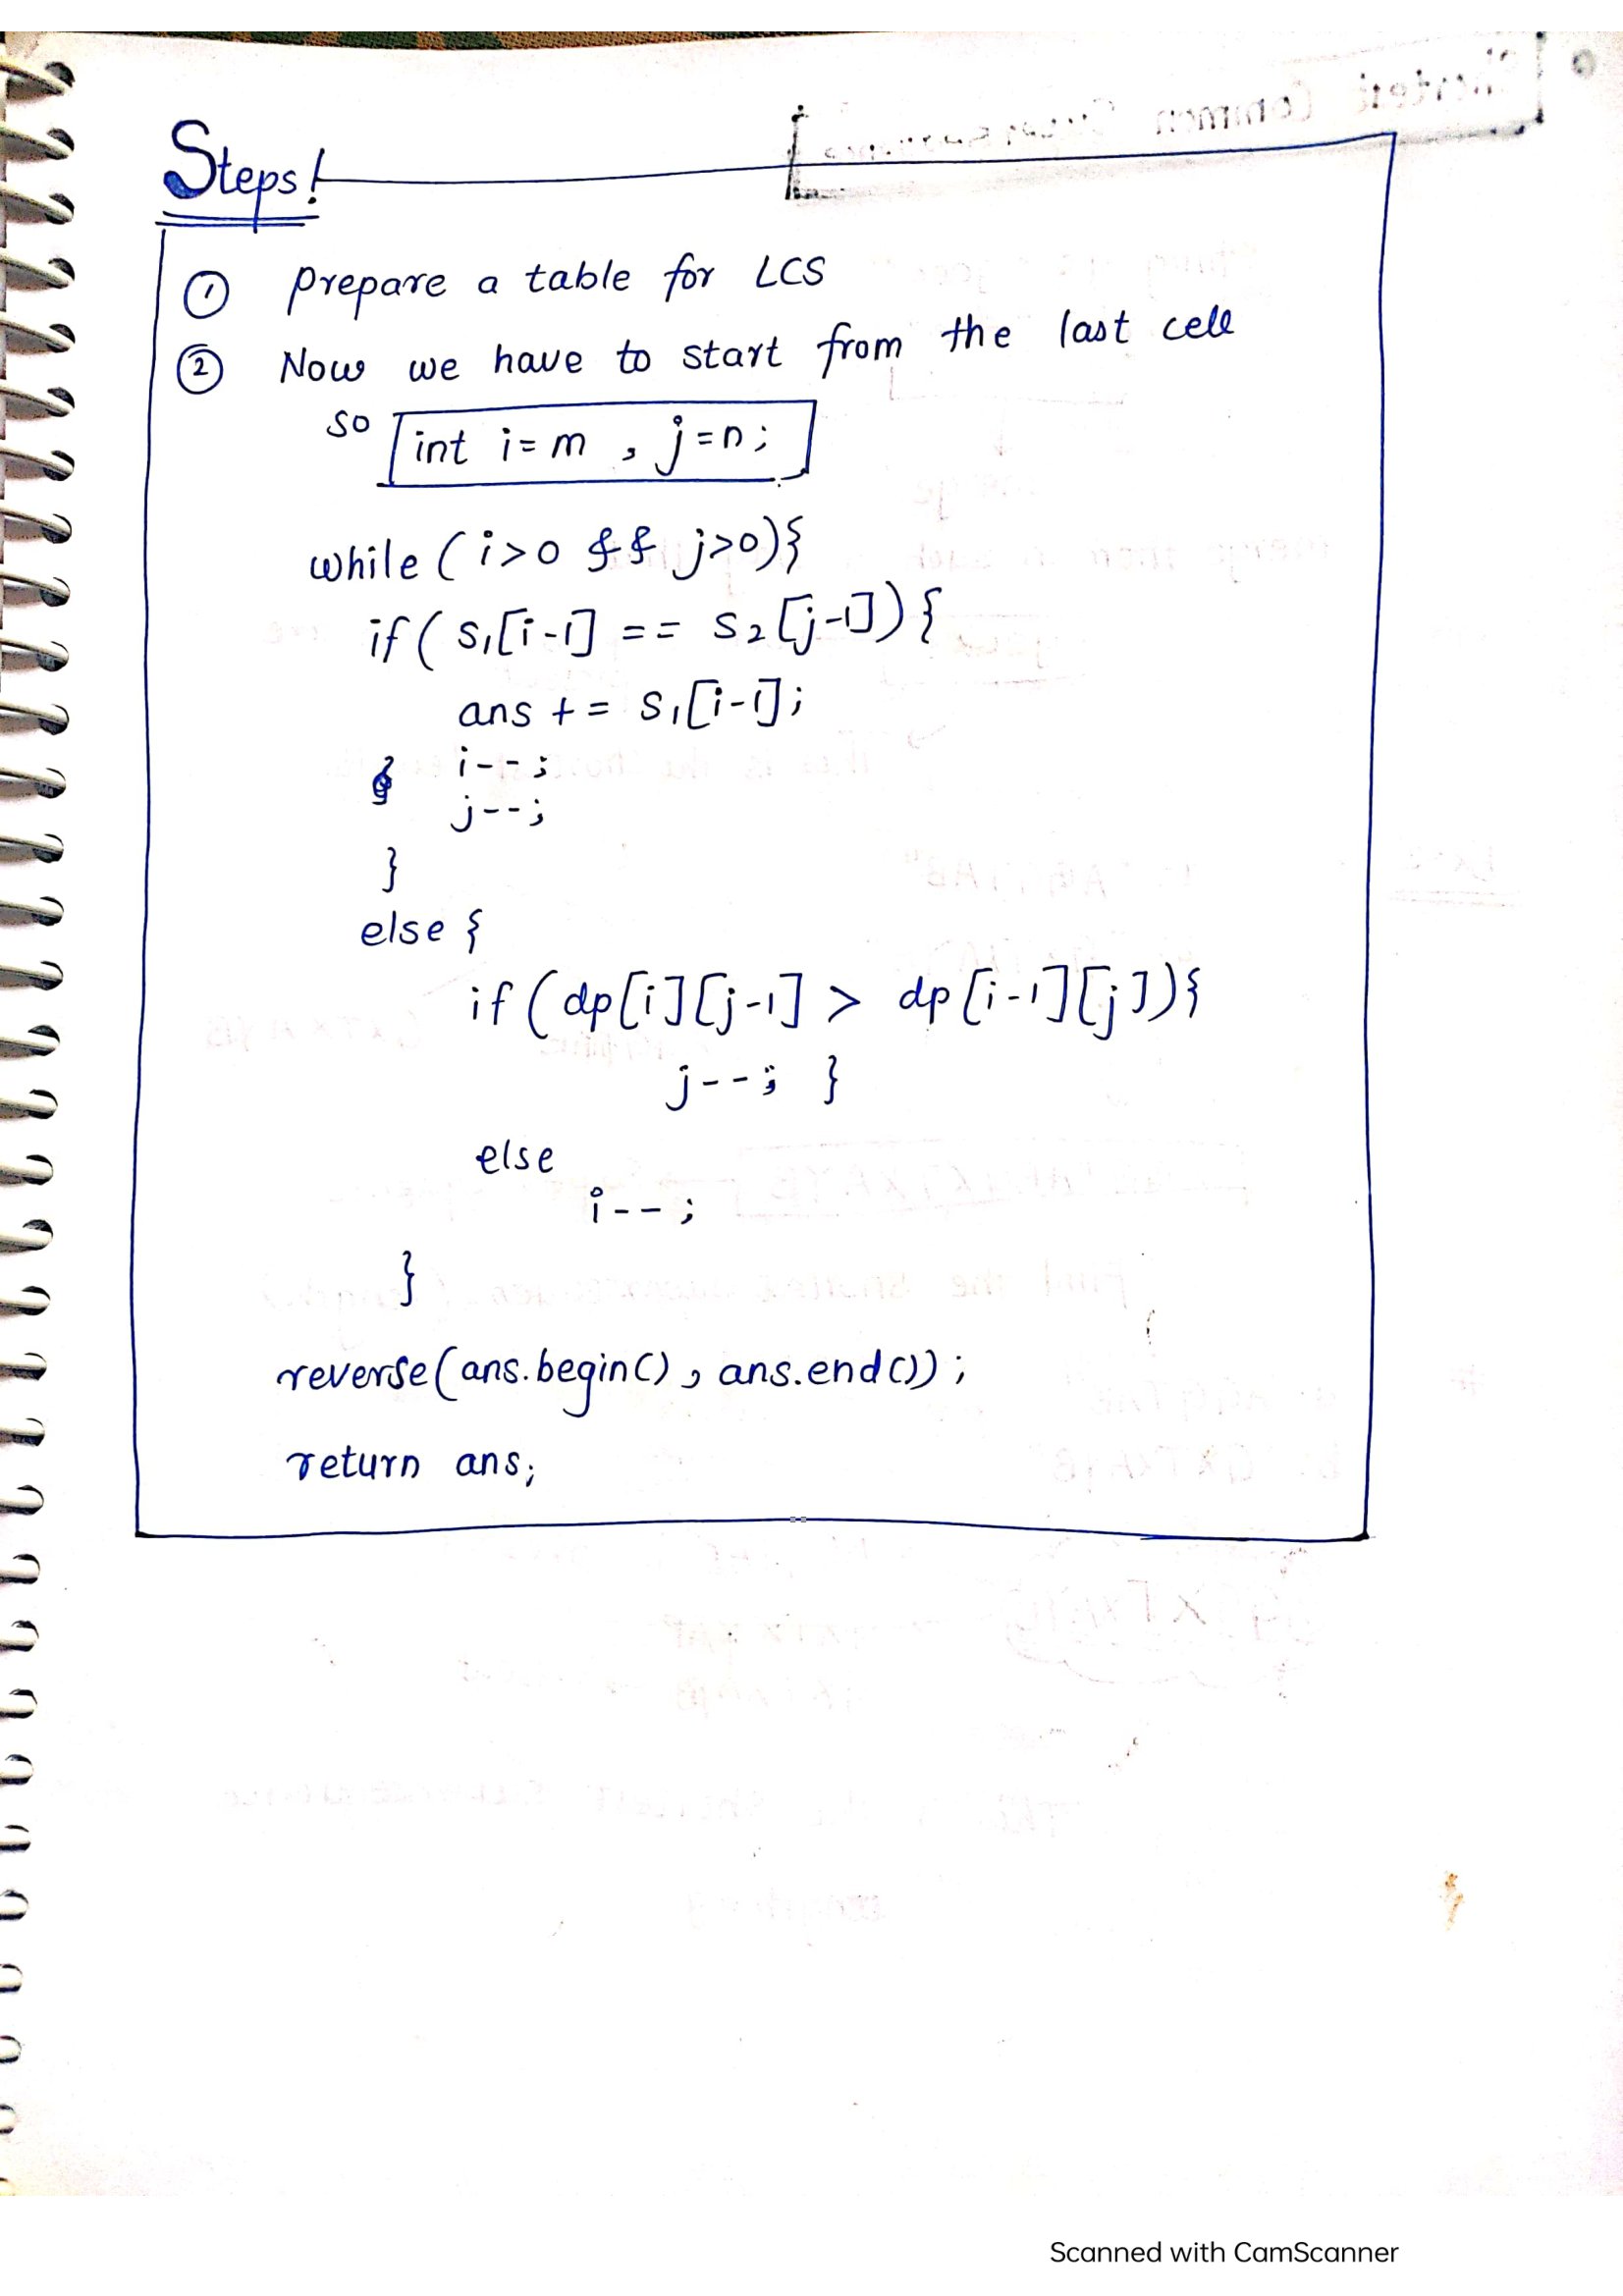 Steps!
① prepare a table for LCS
② Now we have to start from the last cell
so int i=m , j=n;
while ( i>0 && j>0){
if ( s1[i-1] == s2[j-1]) {
ans += s1[i-1];
i--;
j--;
}
else {
if ( dp[i][j-1] > dp[i-1][j]){
j--; }
else
i--;
}
reverse(ans.begin() , ans.end());
return ans;
Scanned with CamScanner